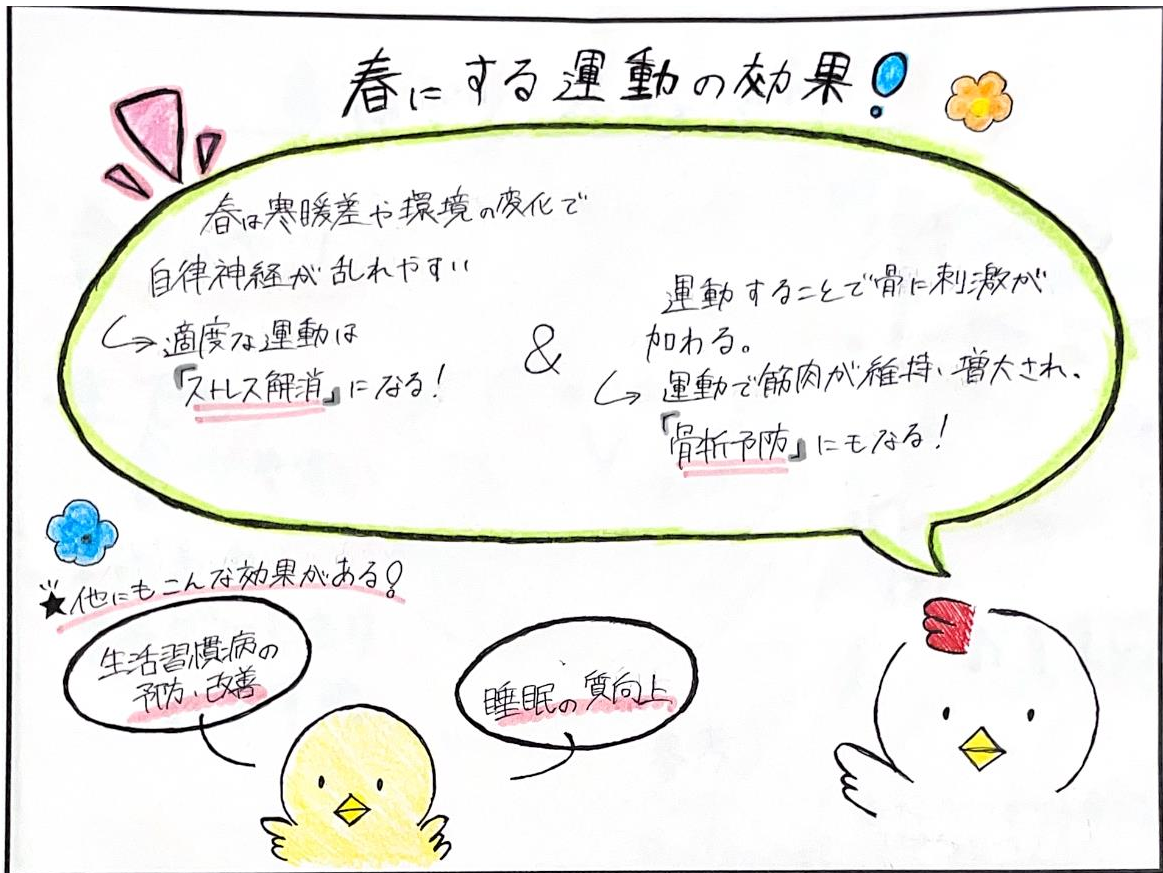 春にする運動の効果!
春は寒暖差や環境の変化で
自律神経が乱れやすい
→適度な運動は
「ストレス解消」になる!
&
運動することで骨に刺激が
加わる。
→運動で筋肉が維持、増大され、
「骨折予防」にもなる!
★他にもこんな効果がある!
生活習慣病の
予防、改善
睡眠の質向上